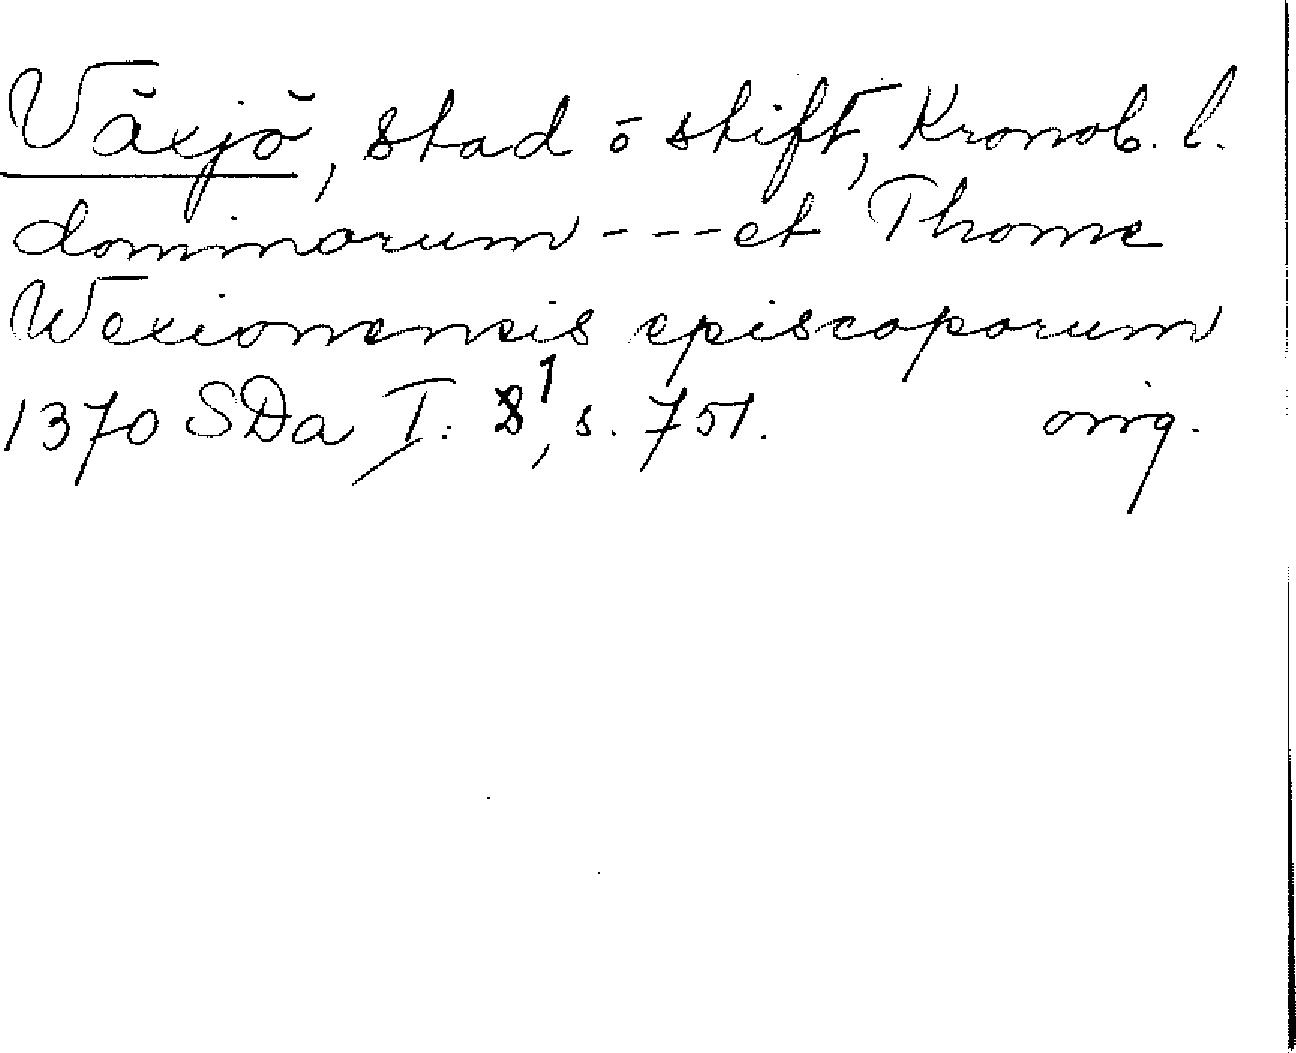 Växjö, stad o stift, Kronob. l.
dominorum --- et Thome
Wexionensis episcoporum
1370 SDa I: 8¹, s. 751. orig.